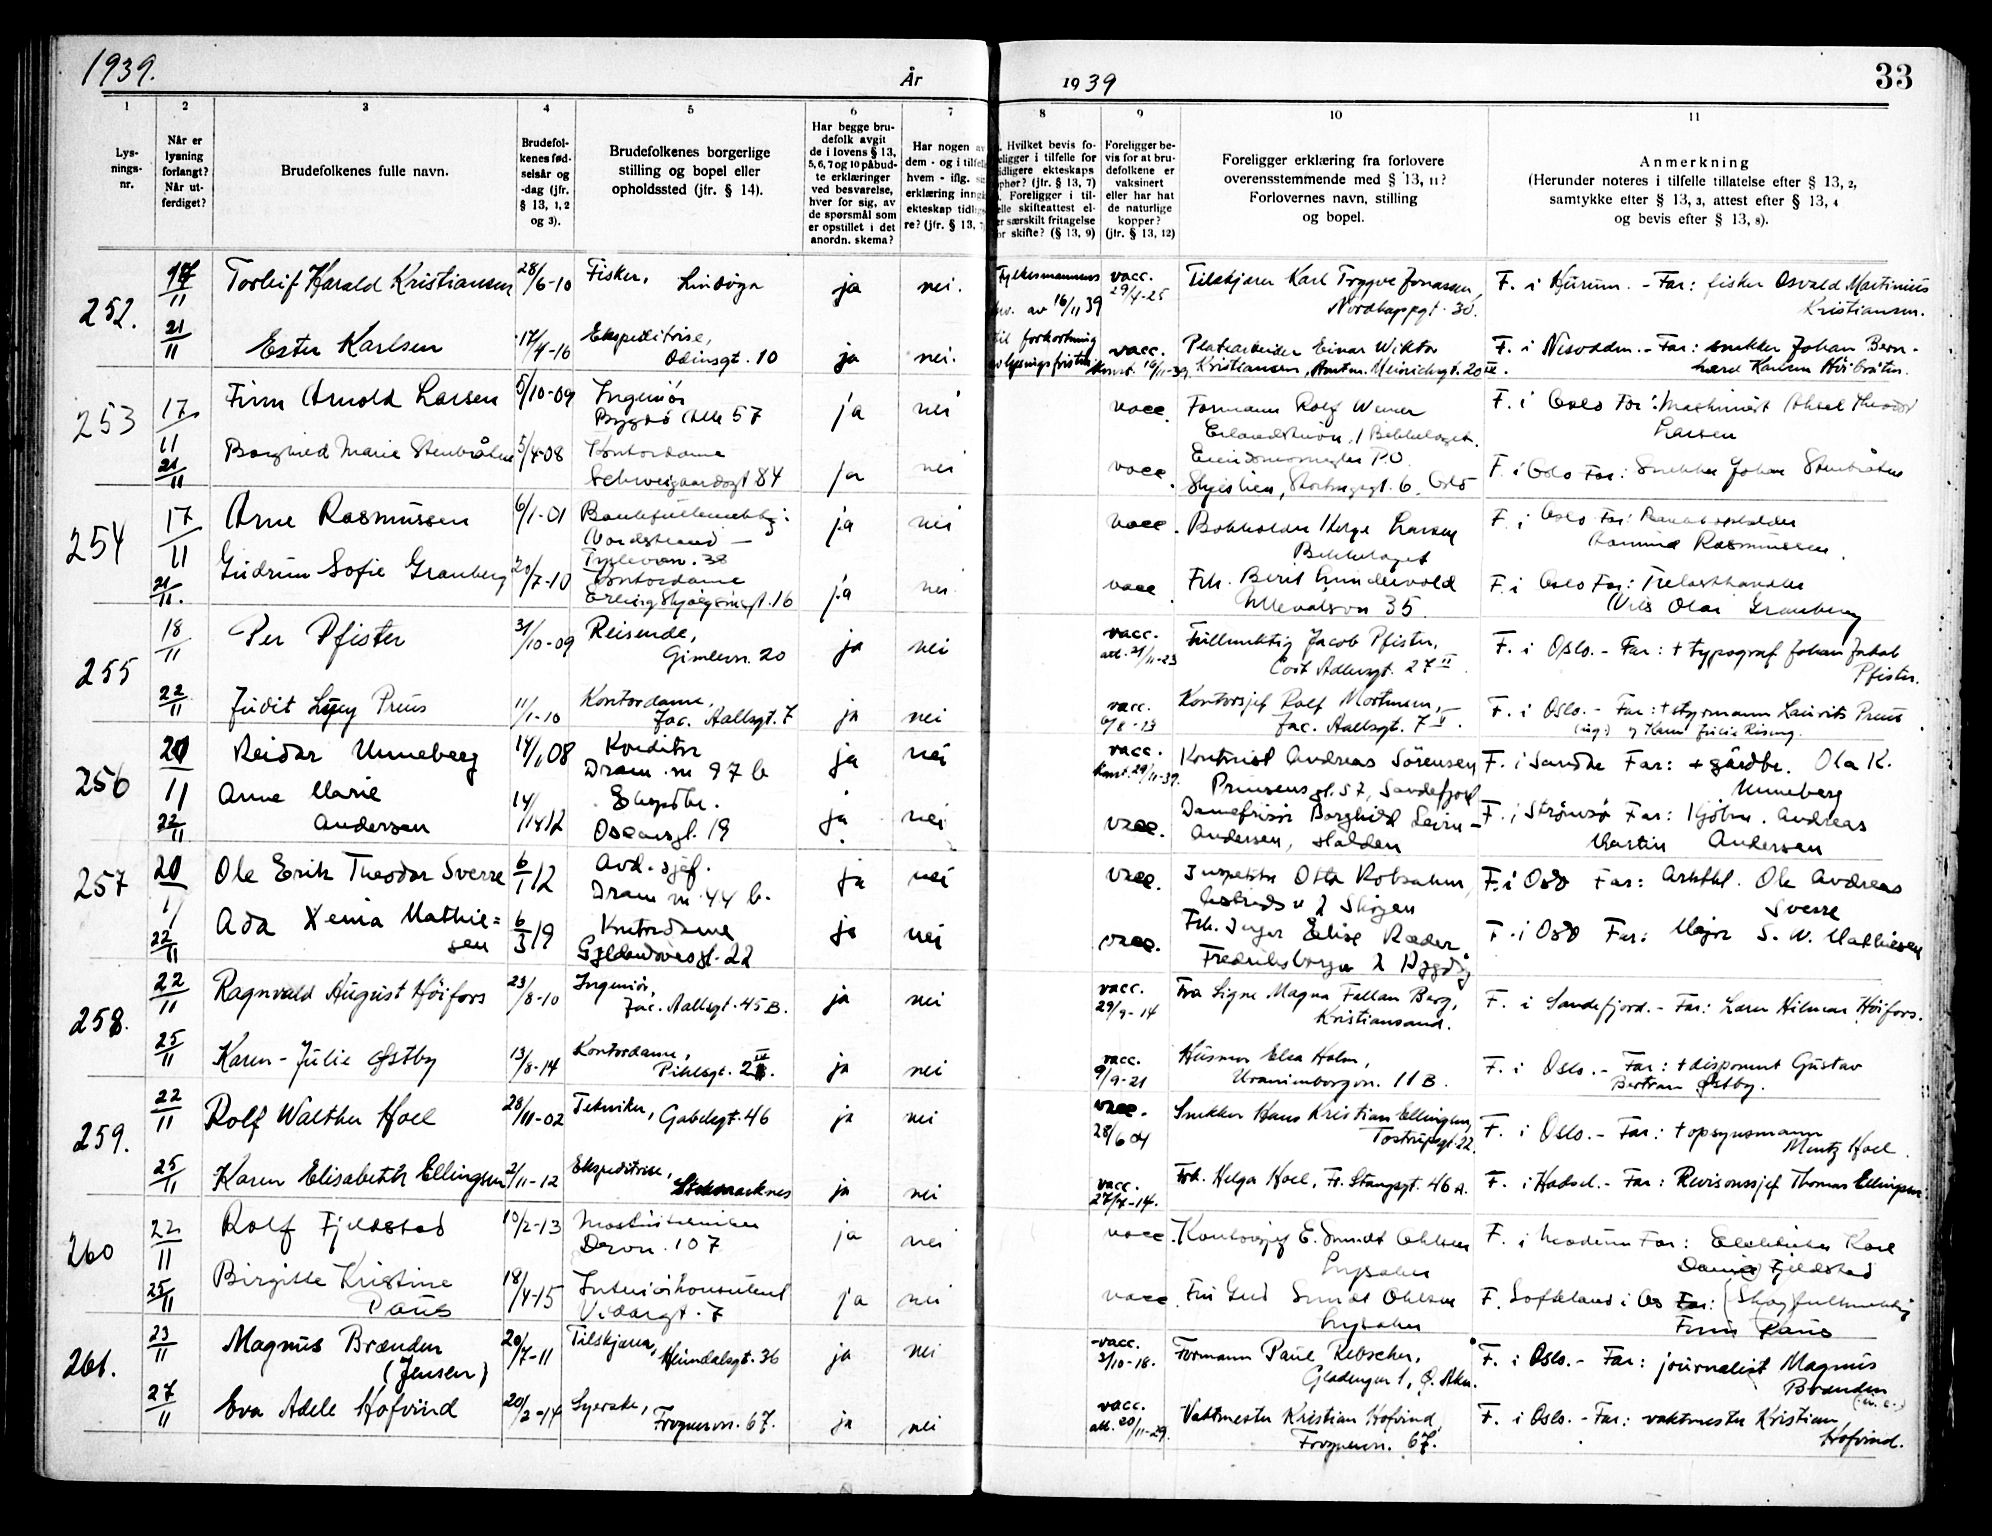 1939.
År
1939
33
1
2
3
4
5
6
7
8
9
10
11
Lys-
nings-
nr.
Når er
lysning
forlangt?
Når ut-
ferdiget?
Brudefolkenes fulle navn.
Brudefol-
kenes fød-
selsår og
-dag (jfr.
§ 13, 1, 2
og 3).
Brudefolkenes borgerlige
stilling og bopel eller
opholdssted (jfr. § 14).
Har begge bru-
defolk avgit
de i lovens § 13,
5, 6, 7 og 10 påbud-
te erklæringer
ved besvarelse,
hver for sig, av
de spørsmål som
er opstillet i det
anordn. skema?
Har nogen av
dem - og i tilfelle
hvem - iflg.
erklæring inngått
ekteskap tidlige-
re? (jfr. § 13,
Hvilket bevis fo-
religger i tilfelle for
tidligere ekteskaps
ophør? (jfr. § 13, 7)
Foreligger i til-
felle skifteattest el-
ler særskilt fritagelse
for skifte? (§ 13, 9)
Foreligger be-
vis for at bru-
defolkene er
vaksinert
eller har hat
de naturlige
kopper?
(jfr. § 13, 12)
Foreligger erklæring fra forlovere
overensstemmende med § 13, 11?
Forlovernes navn, stilling
og bopel.
Anmerkning
(Herunder noteres i tilfelle tillatelse efter § 13, 2,
samtykke efter § 13, 3, attest efter § 13, 4
og bevis efter § 13, 8).
252.
17/11
Torleif Harald Kristiansen
28/6-10
Fisker, Lindøya
ja
nei.
Fylkesmannens
av 16/11 39
vacc.
29/4-25
Tilskjærer Karl Trygve Jonassen,
Nordkappgt. 30.
F. i Hurum. - Far: fisker Osvald Martinius
Kristiansen.
21/11
Ester Karlsen
17/4-16
Ekspeditrise,
Odinsgt. 10
ja
nei.
til forkortning
av lysningsfristen
vacc.
16/11-39.
Platearbeider Einar Wiktor
Kristiansen, Anton Meinichsgt. 20 IV.
F. i Nesodden. - Far: snekker Johan Bern-
hard Karlsen
253
17/11
Finn Arnold Larsen
5/10-09
Ingeniör
Bygdö Alle 57
ja
nei
vacc.
Formann Rolf Werner
1 Bekkelaget.
F. i Oslo Far: Maskinist Aksel Theodor
Larsen
21/11
Borghild Marie Stenbråten
5/4-08
Kontordame
Schweigaardsgt 84
ja
nei
vacc.
Eiendomsmegler P.O.
Stortingsgt. 6, Oslo
F. i Oslo Far: Snekker Johan Stenbråten
254
17/11
Arne Rasmussen
6/1-01
Bankfullmektig:
Nordstrand
38
ja
nei
vacc.
Bokholder Helge Larsen
Bekkelaget
F. i Oslo Far:
Rasmussen.
21/11.
Gudrun Sofie Granberg
20/7-10
Kontordame
Erling Skjalgsonsgt. 16
ja
nei
vacc.
Frk. Berit Lundevold
Ullevålsvn 35.
F. i Oslo Far: Trelasthandler
Nils Olai Granberg
255
18/11
Per Pfister
31/10-09
Reisende,
Gimlevn. 20
ja
nei
vacc.
att. 21/11-23
Fullmektig Jacob Pfister,
Cort Adlersgt. 27 II
F. i Oslo. - Far: + typograf Johan Jakob
Pfister.
22/11
Judit Lucy Preus
11/1-10
Kontordame,
Jac. Aallsgt. 7
ja
nei
vacc.
6/8-13
Kontorsjef Rolf Mortensen,
Jac. Aallsgt. 7 V.
F. i Oslo. - Far: + styrmann Laurits Preus
(ug.) og Karen Julie Rising.
256
20/11
Reidar Unneberg
14/1 08
Konditor
Dram. vn 97 b
ja
nei
vacc.
Konst. 29/11-39.
Kontorist Andreas Sörensen
Prinsens gt. 57, Sandefjord
F. i Sandar Far: + gårdbr. Ola K.
Unneberg
22/11
Anne Marie
Andersen
14/12
Ekspedtr.
Oscarsgt. 19
ja
nei
vacc.
Damefrisör Borghild
Andersen, Halden
F. i Strømsø Far: Kjøbm. Andreas
Martin Andersen
257
20/11
Ole Erik Theodor Sverre
6/1 12
Avd. sjef.
Dram vn. 44 b.
ja
nei
vacc.
Inspektör Otto Robsahm,
Skøyen
F. i Oslo Far: Arkitekt. Ole Andreas
Sverre
22/11
Ada Xenia Mathie=
sen
6/3 19
Kontordame
Gyldenløvesgt. 22
ja
nei
vacc.
Frk. Inger Elise Ræder
Fredriksborgvn 2 Bygdöy
F. i Oslo Far: Major S. W. Mathiesen
258.
22/11
Ragnvald August Höifors
23/8-10
Ingeniör,
Jac. Aallsgt. 45 B.
ja
nei
vacc.
29/9-14
Fru Signe Magna Fallan Berg,
Kristiansand.
F. i Sandefjord. - Far: Lærer Hilmar Höifors.
25/11
Karen-Julie Østby
13/8-14
Kontordame,
Pihlsgt.
ja
nei
vacc.
9/9-21
Husmor Elsa Holm,
Uranienborgvn. 11 B.
F. i Oslo. - Far: + disponent Gustav
Bertram Østby.
259.
22/11
Rolf Walther Hoel
28/11-02
Tekniker, Gabelsgt. 46
ja
nei
vacc.
28/6 04
Snekker Hans Kristian Ellingsen,
Tostrupsgt. 22.
F. i Oslo. - Far: + opsynsmann
Mentz Hoel.
25/11
Karen Elisabeth Ellingsen
2/11-12
Ekspeditrise,
Stokmarknes
ja
nei
vacc.
27/4-14.
Frk. Helga Hoel, Fr. Stangsgt. 46 A.
F. i Hadsel. - Far: Revisonssjef Thomas Ellingsen.
260
22/11
Rolf Fjeldstad
10/2-13
Maskintekniker
Drvn. 107
ja
nei
vacc.
Kontorsjef E. Smidt Ohlsen
Lysaker
F. i Modum Far: Elektriker Karl
Daniel Fjeldstad
25/11
Birgitte Kristine
Paus
18/4-15
Interiörkonsulent
Vidarsgt. 7
ja
nei
vacc
Fru Gerd Smidt Ohlsen
Lysaker
F. Softeland i Os Far: (Skog)fullmektig
Finn Paus
261.
23/11
Magnus Brænden
(Jensen)
20/7-11
Tilskjærer,
Heimdalsgt. 36
ja
nei
vacc.
3/10-18.
Formann Paul Rebscher,
Gladengvn 1, Ø. Aker.
F. i Oslo. - Far: journalist Magnus
Brænden
27/11
Eva Adele Hofvind
20/2-14
Syerske,
Frognervn. 67.
ja
nei
vacc.
att. 20/11-29.
Vaktmester Kristian Hofvind,
Frognervn. 67.
F. i Oslo. - Far: vaktmester Kristian
Hofvind.